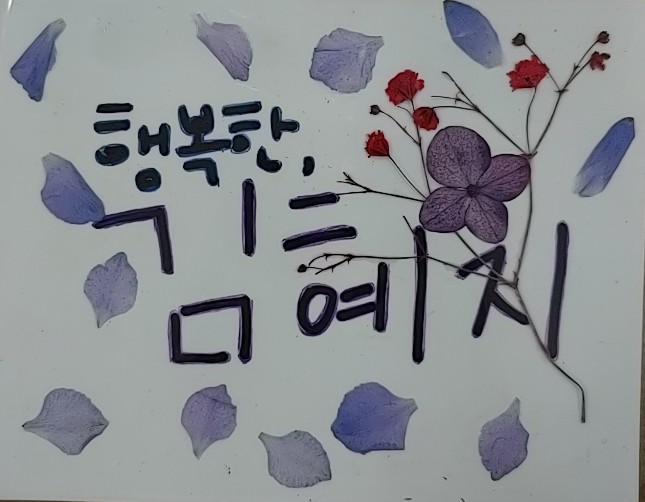 행복한,
김혜지